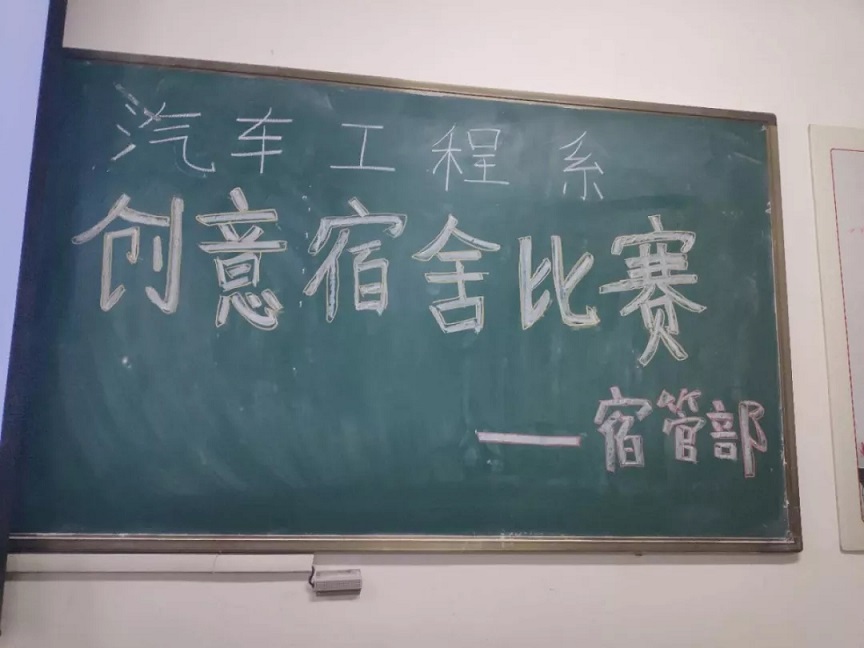 汽车工程系
创意宿舍比赛
——宿管部